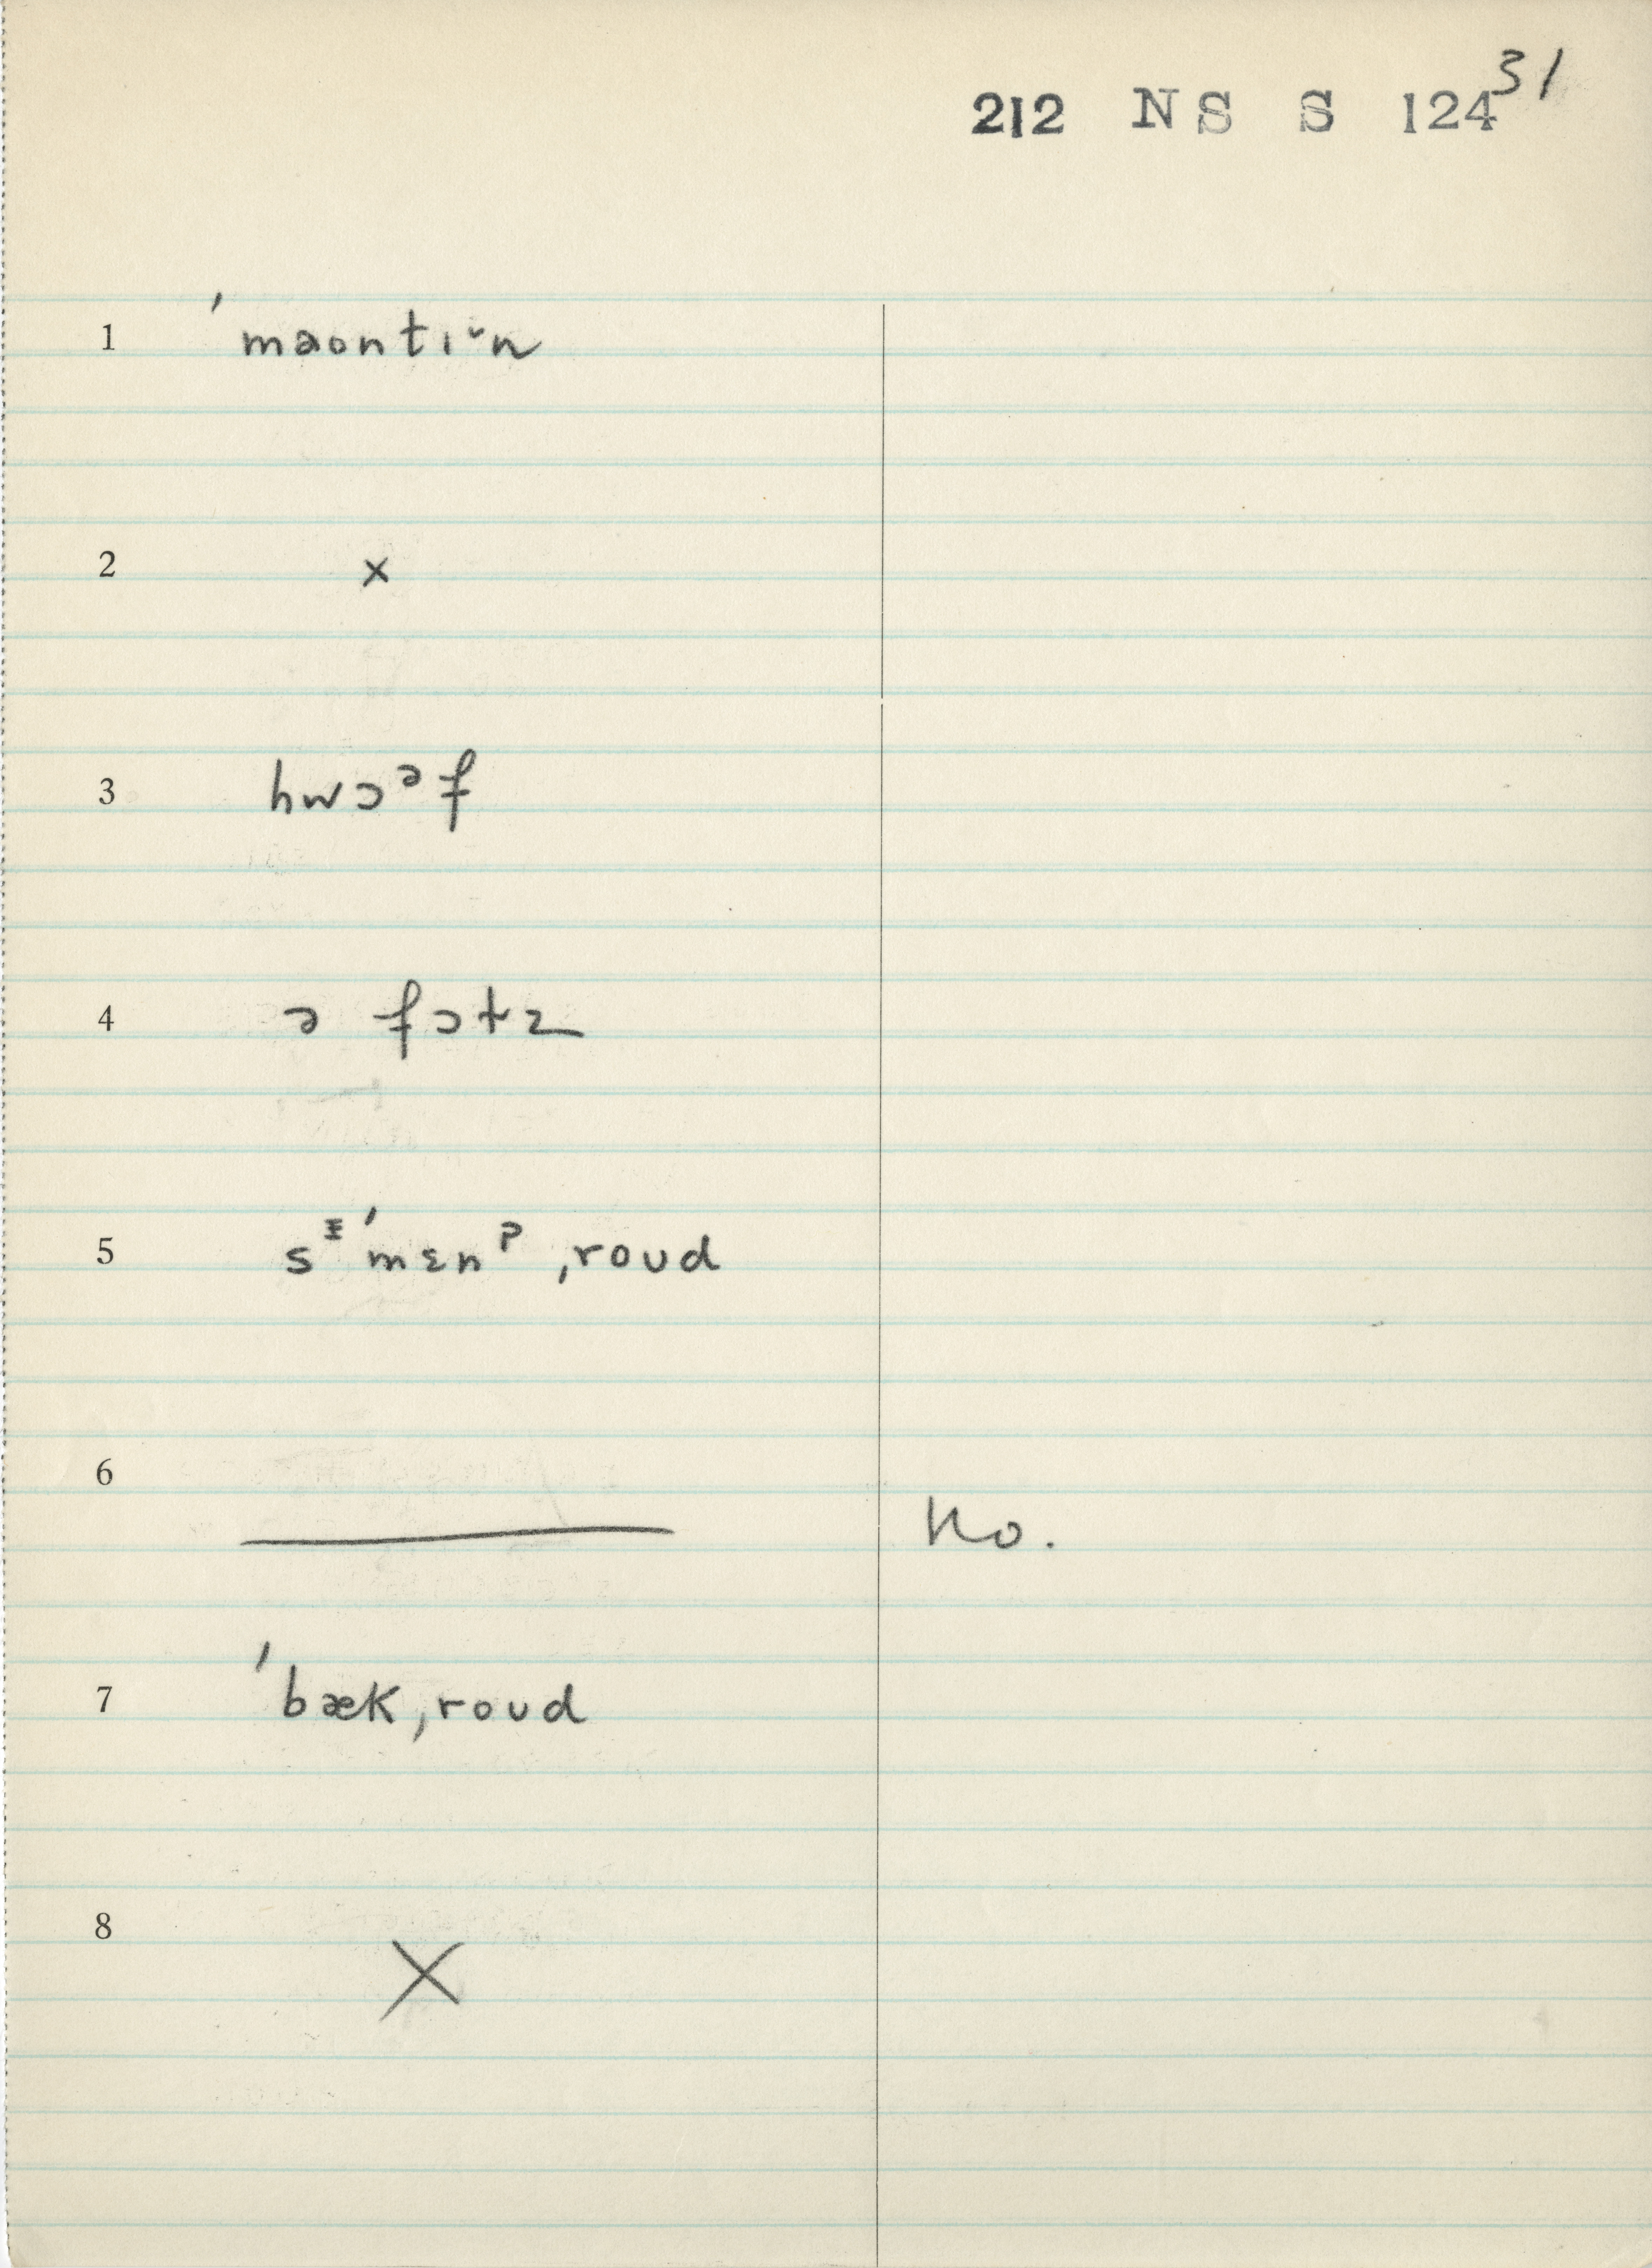 31
212 NS S 124
1 ˈmaontɪ˘n
2 x
3 hwɔᵊf
4 ə fɔtz
5 sᵻˈmɛnᵖˌroʊd
6 —— No.
7 ˈbækˌroʊd
8 X